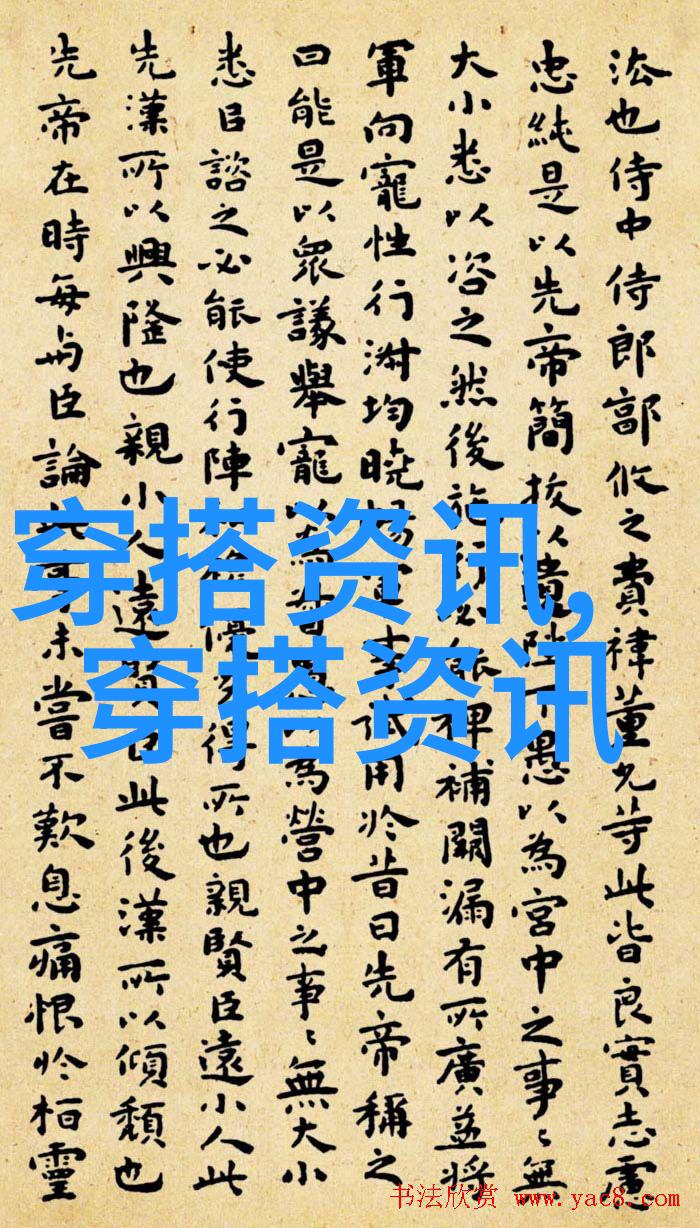 法也侍中侍郎郭攸之費禕董允等此皆良實志慮
忠純是以先帝簡拔以遺陛下愚以為宮中之事〻無
大小悉以咨之然後施行必能裨補闕漏有所廣益將
軍向寵性行淑均曉暢軍事試用於昔日先帝稱之
曰能是以眾議舉寵以為督愚以為營中之事〻無大小
悉以諮之必能使行陣和穆優劣得所也親賢臣遠小人此
先漢所以興隆也親小人遠賢臣此後漢所以傾頹也
先帝在時每與臣論此事未嘗不歎息痛恨於桓靈
穿搭资讯,
穿搭资讯
书法欣赏 www.yac8.com